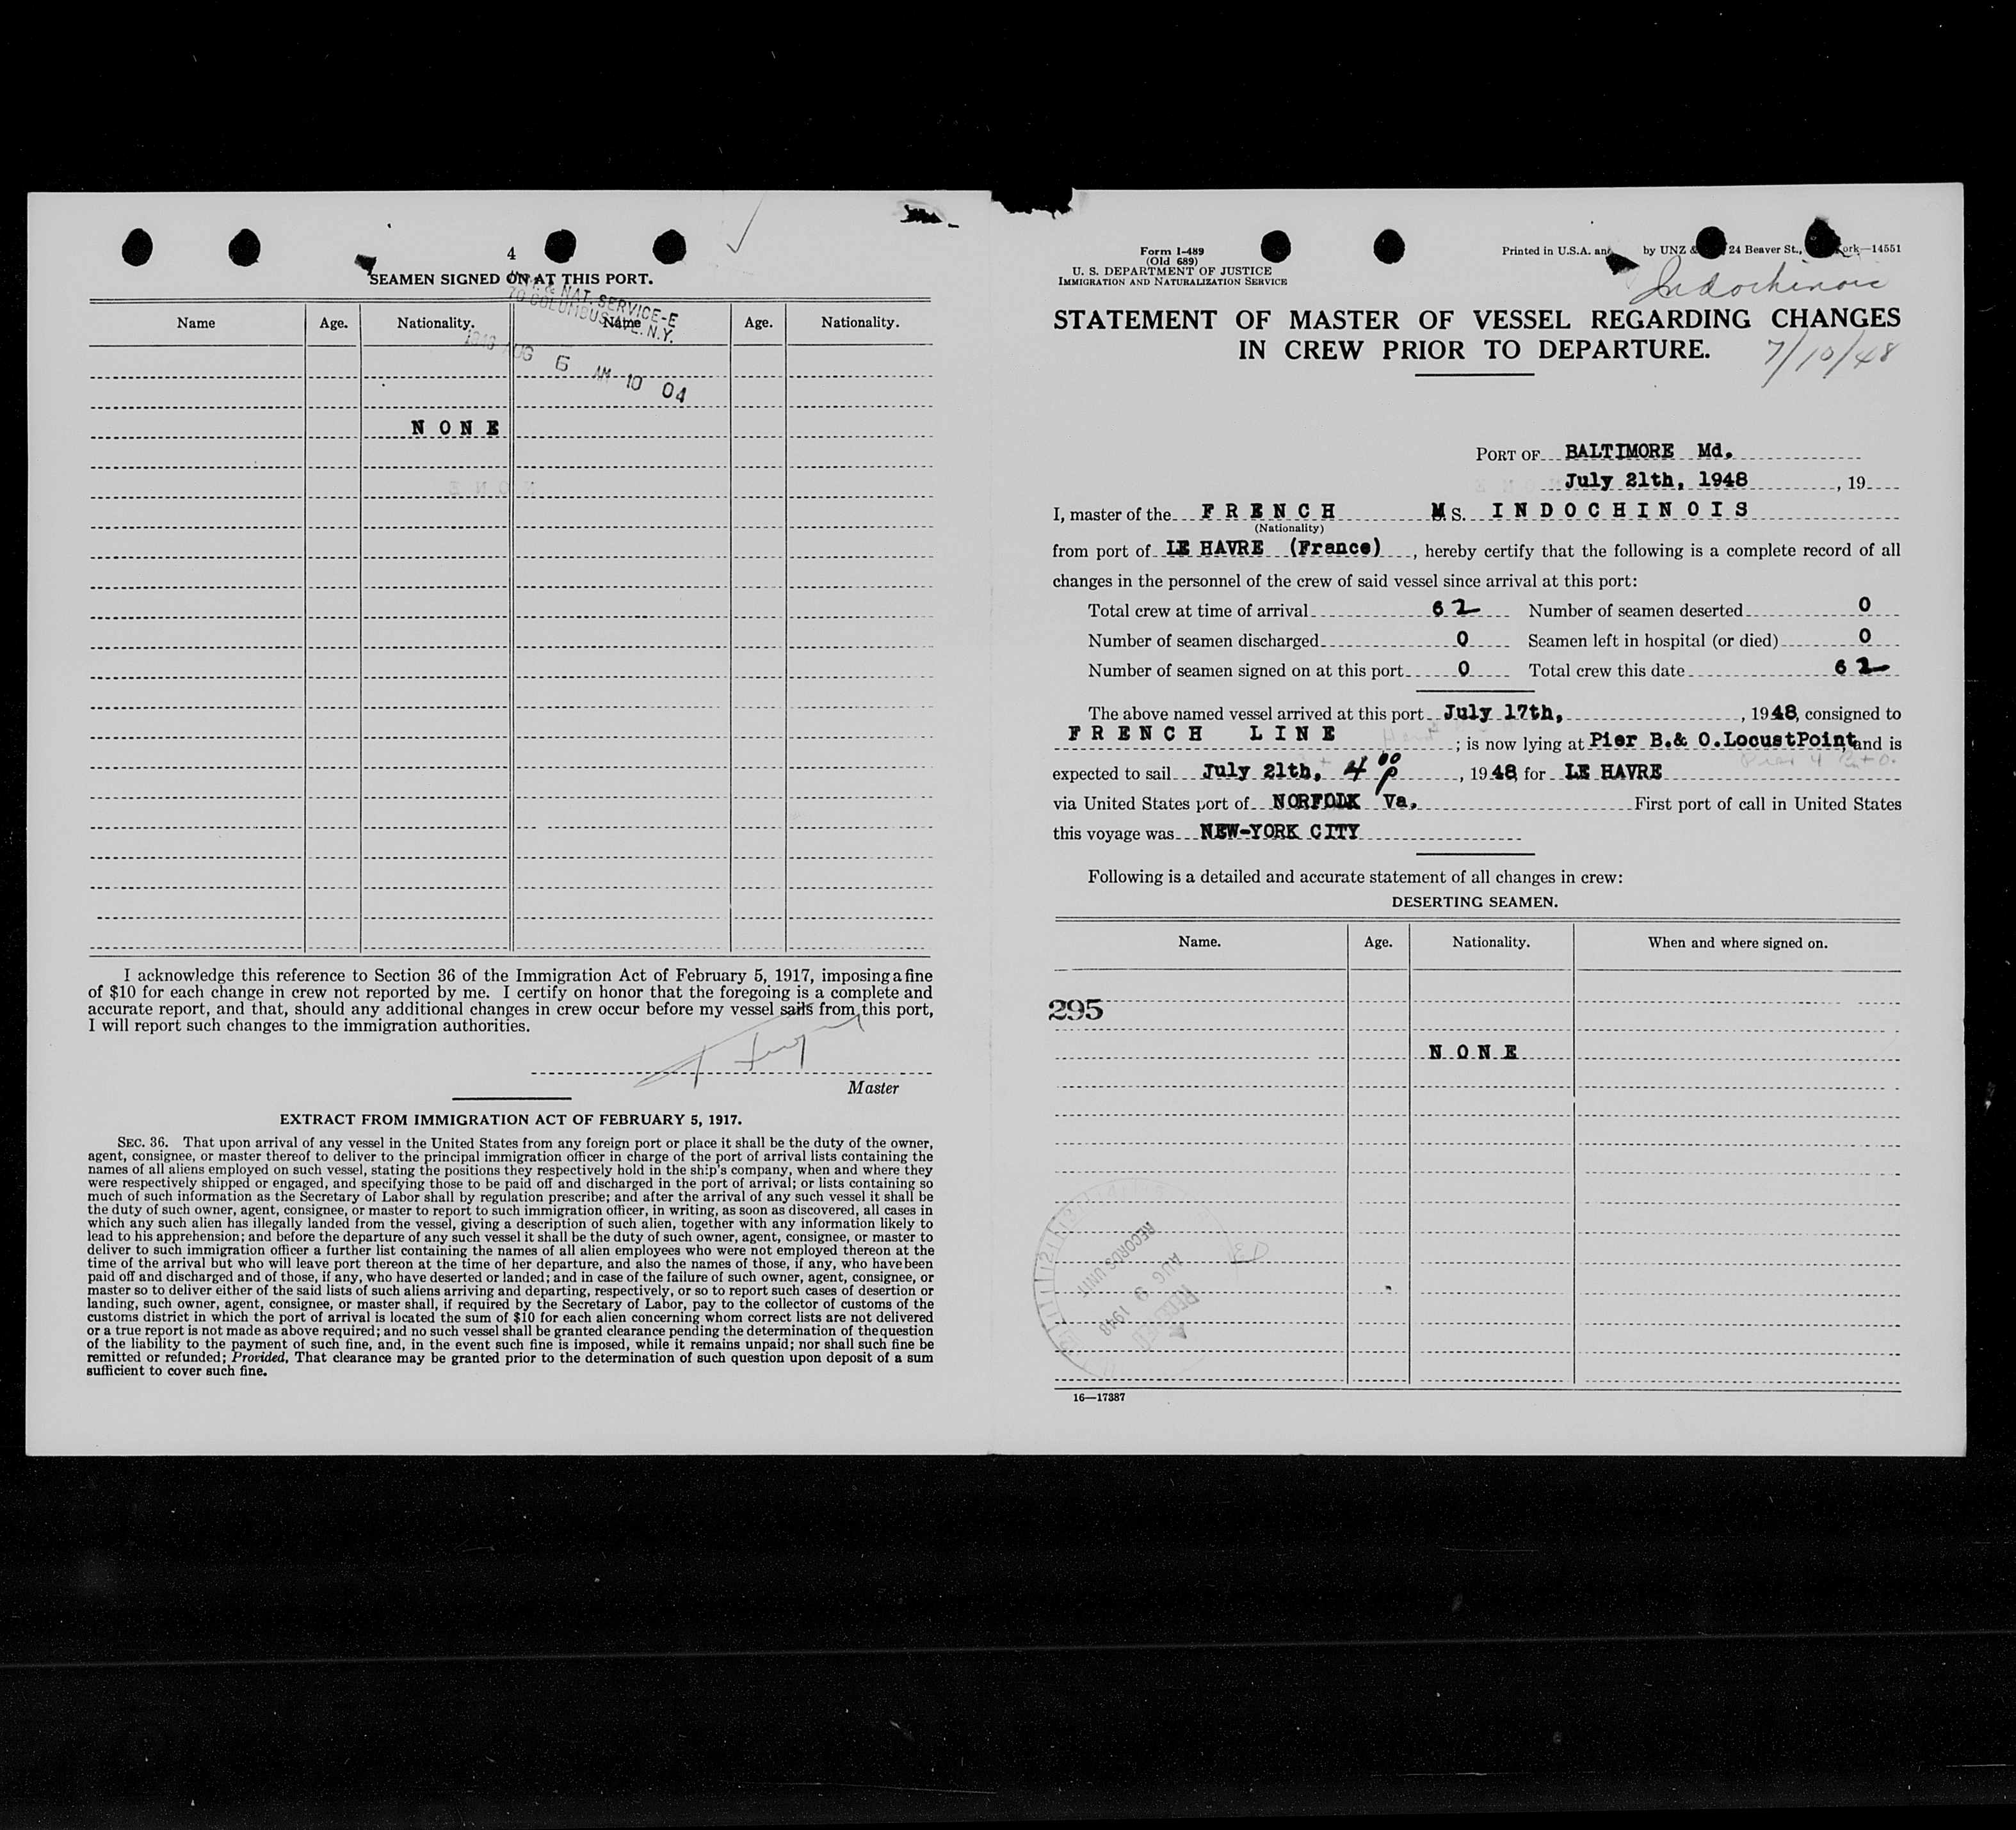 4
SEAMEN SIGNED ON AT THIS PORT.
& NAT. SERVICE-E
70 COLUMBUS AVE. N.Y.
Name Age. Nationality. Name Age. Nationality.
1948 AUG 6 AM 10 04
N O N E
I acknowledge this reference to Section 36 of the Immigration Act of February 5, 1917, imposing a fine
of $10 for each change in crew not reported by me. I certify on honor that the foregoing is a complete and
accurate report, and that, should any additional changes in crew occur before my vessel sails from this port,
I will report such changes to the immigration authorities.
Master
EXTRACT FROM IMMIGRATION ACT OF FEBRUARY 5, 1917.
SEC. 36. That upon arrival of any vessel in the United States from any foreign port or place it shall be the duty of the owner,
agent, consignee, or master thereof to deliver to the principal immigration officer in charge of the port of arrival lists containing the
names of all aliens employed on such vessel, stating the positions they respectively hold in the ship's company, when and where they
were respectively shipped or engaged, and specifying those to be paid off and discharged in the port of arrival; or lists containing so
much of such information as the Secretary of Labor shall by regulation prescribe; and after the arrival of any such vessel it shall be
the duty of such owner, agent, consignee, or master to report to such immigration officer, in writing, as soon as discovered, all cases in
which any such alien has illegally landed from the vessel, giving a description of such alien, together with any information likely to
lead to his apprehension; and before the departure of any such vessel it shall be the duty of such owner, agent, consignee, or master to
deliver to such immigration officer a further list containing the names of all alien employees who were not employed thereon at the
time of the arrival but who will leave port thereon at the time of her departure, and also the names of those, if any, who have been
paid off and discharged and of those, if any, who have deserted or landed; and in case of the failure of such owner, agent, consignee, or
master so to deliver either of the said lists of such aliens arriving and departing, respectively, or so to report such cases of desertion or
landing, such owner, agent, consignee, or master shall, if required by the Secretary of Labor, pay to the collector of customs of the
customs district in which the port of arrival is located the sum of $10 for each alien concerning whom correct lists are not delivered
or a true report is not made as above required; and no such vessel shall be granted clearance pending the determination of the question
of the liability to the payment of such fine, and, in the event such fine is imposed, while it remains unpaid; nor shall such fine be
remitted or refunded; Provided, That clearance may be granted prior to the determination of such question upon deposit of a sum
sufficient to cover such fine.
Form I-489
(Old 689)
U. S. DEPARTMENT OF JUSTICE
IMMIGRATION AND NATURALIZATION SERVICE
Printed in U.S.A. by UNZ & 24 Beaver St., 14551
Indochinois
STATEMENT OF MASTER OF VESSEL REGARDING CHANGES
IN CREW PRIOR TO DEPARTURE.
7/10/48
PORT OF BALTIMORE Md.
July 21th, 1948, 19
I, master of the F R E N C H M S. I N D O C H I N O I S
(Nationality)
from port of LE HAVRE (France), hereby certify that the following is a complete record of all
changes in the personnel of the crew of said vessel since arrival at this port:
Total crew at time of arrival 62 Number of seamen deserted 0
Number of seamen discharged 0 Seamen left in hospital (or died) 0
Number of seamen signed on at this port 0 Total crew this date 62
The above named vessel arrived at this port July 17th, , 1948, consigned to
F R E N C H L I N E ; is now lying at Pier B.& O.LocustPoint, and is
Pier 4 B+O.
expected to sail July 21th, 4 00 p, 1948, for LE HAVRE
via United States port of NORFOLK Va. First port of call in United States
this voyage was NEW-YORK CITY
Following is a detailed and accurate statement of all changes in crew:
DESERTING SEAMEN.
Name. Age. Nationality. When and where signed on.
295
N O N E
RECORDS UNIT
AUG 9 1948
RECEIVED
16—17387